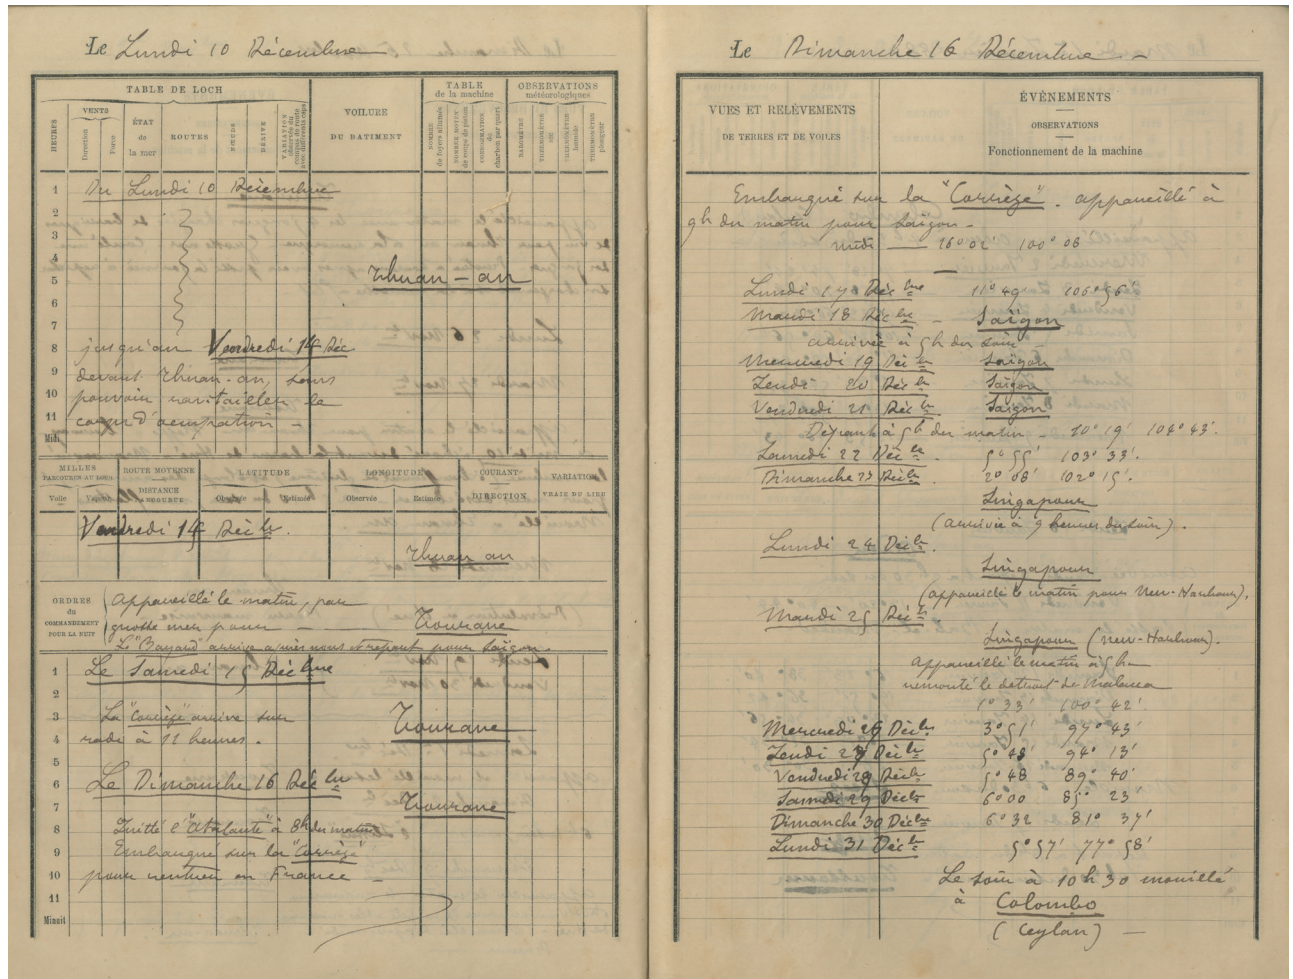 Le Lundi 10 Décembre
TABLE DE LOCH
VOILURE
DU BATIMENT
TABLE
de la machine
OBSERVATIONS
météorologiques
HEURES
VENTS
Direction
Force
ÉTAT
de
la mer
ROUTES
NŒUDS
DÉRIVE
VARIATION
NOMBRE
de foyers allumés
NOMBRE MOYEN
de coups de piston
CONSOMMATION
de
charbon par quart
BAROMÈTRE
THERMOMÈTRE
sec
THERMOMÈTRE
humide
THERMOMÈTRE
plongeur
1 Du Lundi 10 Décembre
2
3
4
5 Thuan-an
6
7
8 jusqu'au Vendredi 14 Déc
9 devant Thuan-an, sans
10 pouvoir ravitailler le
11 corps d'occupation -
Midi
MILLES
PARCOURUS AU LOCH
ROUTE MOYENNE
LATITUDE
LONGITUDE
COURANT
VARIATION
Voile
Vapeur
DISTANCE
PARCOURUE
Observée
Estimée
Observée
Estimée
DIRECTION
VRAIE DU LIEU
Vendredi 14 Déc bre.
Thuan an
ORDRES
du
COMMANDEMENT
POUR LA NUIT
Appareillé le matin, par
grosse mer pour - Tourane
Le "Bayard" arrive après nous et repart pour Saïgon.
1 Le Samedi 15 Déc bre
2
3 La "Corrèze" arrive sur Tourane
4 rade à 11 heures.
5
6 Le Dimanche 16 Déc bre
7 Tourane
8 Quitté l'"Atalante" à 8h du matin
9 Embarqué sur la "Corrèze"
10 pour rentrer en France -
11
Minuit
Le Dimanche 16 Décembre -
VUES ET RELÈVEMENTS
DE TERRES ET DE VOILES
ÉVÉNEMENTS
OBSERVATIONS
Fonctionnement de la machine
Embarqué sur la "Corrèze". appareillé à
9h du matin pour Saïgon -
midi - 16° 02' 106° 06
Lundi 17 Déc bre 11° 49' 106° 56'
Mardi 18 Déc bre - Saïgon
arrivée à 5h du soir -
Mercredi 19 Déc bre Saïgon
Jeudi 20 Déc bre Saïgon
Vendredi 21 Déc bre Saïgon
Départ à 5h du matin - 10° 19' 104° 43'.
Samedi 22 Déc bre. 5° 55' 103° 33'.
Dimanche 23 Déc bre. 2° 08' 102° 15'.
Singapour
(arrivée à 9 heures du soir).
Lundi 24 Déc bre.
Singapour
(appareillé le matin pour New-Harbour).
Mardi 25 Déc bre
Singapour (New-Harbour).
Appareillé le matin à 5h
remonté le détroit de Malacca
1° 33' 100° 42'
Mercredi 26 Déc bre 3° 51' 97° 43'
Jeudi 27 Déc bre 5° 48' 94° 13'
Vendredi 28 Déc bre 5° 48 89° 40'
Samedi 29 Déc bre 6° 00 85° 23'
Dimanche 30 Déc bre 6° 32 81° 37'
Lundi 31 Déc bre 5° 57' 77° 58'
Le soir à 10h 30 mouillé
à Colombo
(Ceylan) -